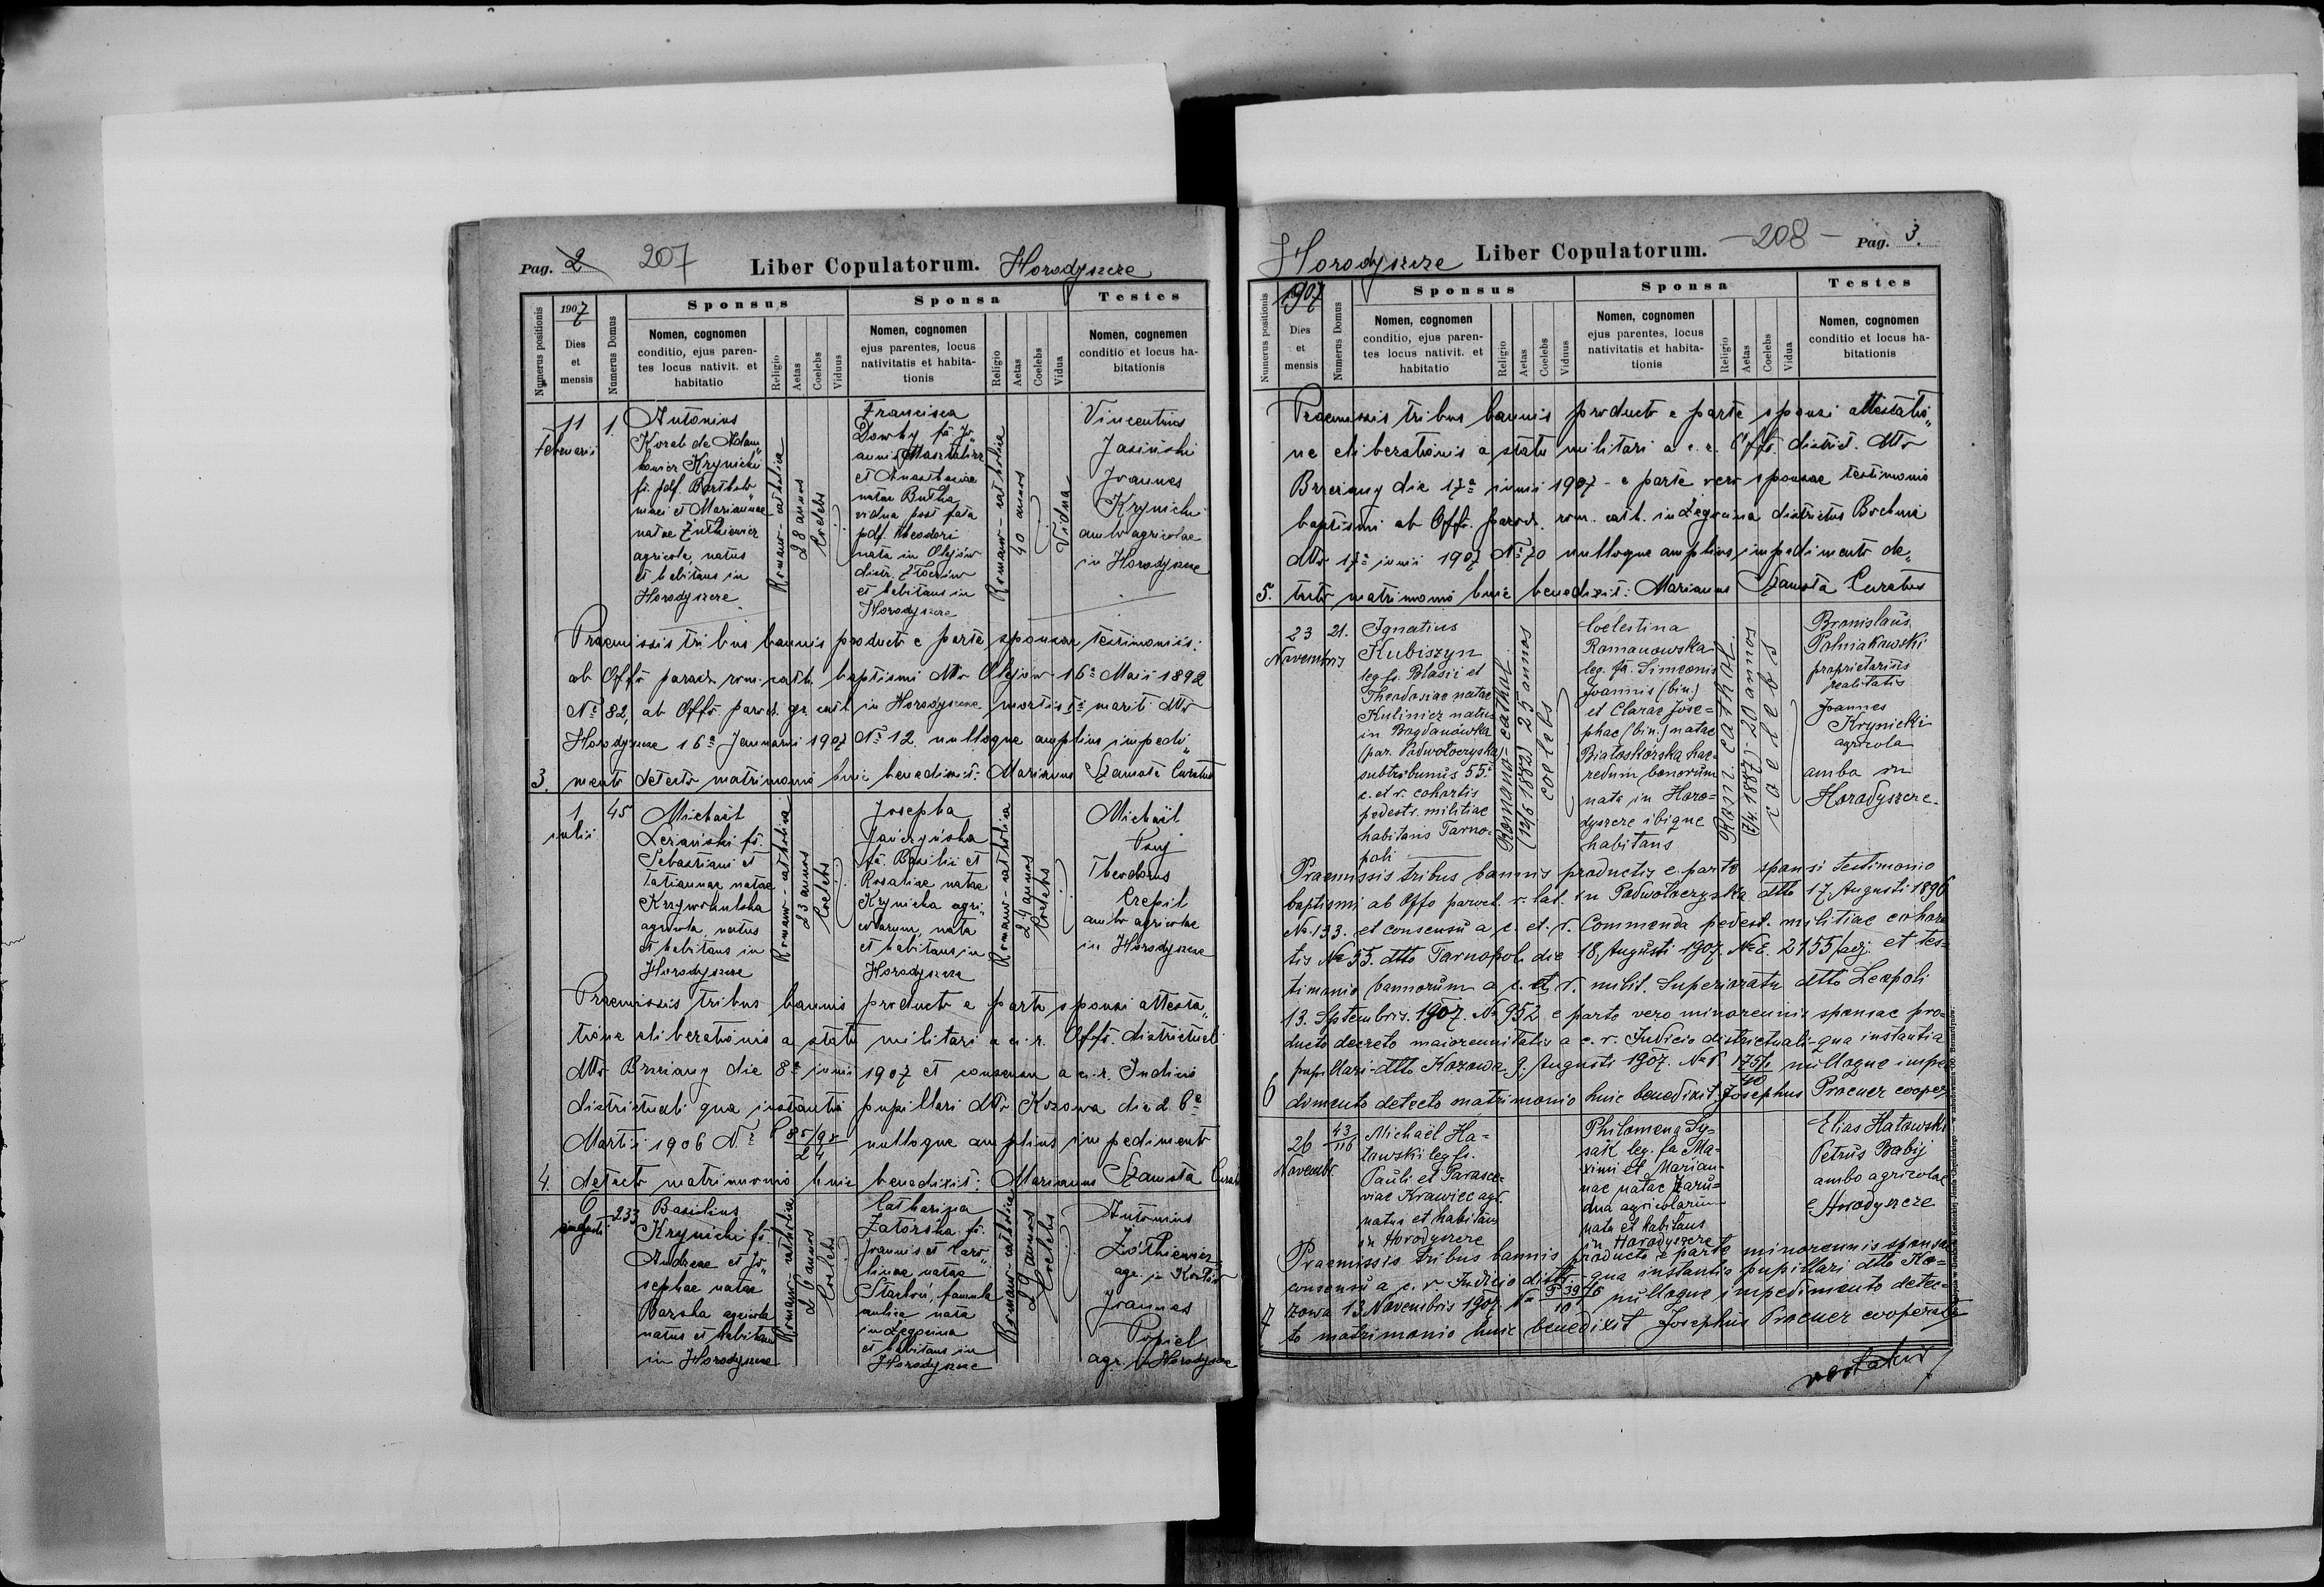 Pag. 2
207
Liber Copulatorum.
Horodyszcze
Numerus positionis
1907
Dies
et
mensis
Numerus Domus
Sponsus
Nomen, cognomen
conditio, ejus paren-
tes locus nativit. et
habitatio
Religio
Aetas
Coelebs
Viduus
Sponsa
Nomen, cognomen
ejus parentes, locus
nativitatis et habita-
tionis
Religio
Aetas
Coelebs
Vidua
Testes
Nomen, cognemen
conditio et locus ha-
bitationis
3.
11
Februarii
1.
Antonius
Korab de Adam„
Krynicki
fs. pdf. Bartholo„
maei et Mariannae
natae
agricola, natus
et habitans in
Horodyszcze
Romano-catholica
28 annos
Coelebs
Francisca
Dowhy fa. Jo„
annis
et Anastasiae
natae Butka
vidua post fata
pdf. Theodori
nata in Olejów
distr. Złoczów
et habitans in
Horodyszcze
Romano-catholica
40 annos
Vidua
Vincentius
Jasiński
Joannes
Krynicki
ambo agricolae
in Horodyszcze
Praemissis tribus bannis producto e parte sponsae testimoniis:
ab Offo paroch. rom. cath. baptismi dtto Olejów 16a Maii 1892
No 82, ab Offo paroch. gr. cath. in Horodyszcze mortis mariti dtto
Horodyszcze 16a Januarii 1907 No 12. nulloque amplius impedi„
mento detecto matrimonio huic benedixit: Marianus Szamota Curatus
4.
1
julii
45
Michaël
Leżański fs.
Sebastiani et
Tatiannae natae
agricola, natus
et habitans in
Horodyszcze
Romano-catholica
23 annos
Coelebs
Josepha
fa. Basilii et
Rosaliae natae
Krynicka agri„
colarum, nata
et habitans in
Horodyszcze
Romano-catholica
24 annos
Coelebs
Michaël
Theodorus
Czepil
ambo agricolae
in Horodyszcze
Praemissis tribus bannis producto e parte sponsi attesta„
tione eliberationis a statu militari a c. r. Offo. districtuali
dtto Brzeżany die 8a junii 1907 et consensu a c. r. Judicio
districtuali qua instantia pupillari dtto Kozowa die
Martii 1906 No P 85/95 / 24 nulloque amplius impedimento
detecto matrimonio huic benedixit: Marianus Szamota Curatus
6
augusti
233
Basilius
Krynicki fs.
Andreae et Jo„
sephae natae
Barska agricola
natus et habitans
in Horodyszcze
Romano-catholica
26 annos
Coelebs
Catharina
Zatorska fa.
Joannis et Caro„
linae natae
Starboń, famula
aulica nata
in Łegocina
et habitans in
Horodyszcze
Romano-catholica
29 annos
Coelebs
Antonius
Żółkiewicz
agr. in
Joannes
Popiel
agr. in Horodyszcze
Horodyszcze
Liber Copulatorum.
- 208 -
Pag. 3.
Numerus positionis
1907
Dies
et
mensis
Numerus Domus
Sponsus
Nomen, cognomen
conditio, ejus paren-
tes locus nativit. et
habitatio
Religio
Aetas
Coelebs
Viduus
Sponsa
Nomen, cognomen
ejus parentes, locus
nativitatis et habita-
tionis
Religio
Aetas
Coelebs
Vidua
Testes
Nomen, cognomen
conditio et locus ha-
bitationis
Praemissis tribus bannis producto e parte sponsi attestatio„
ne eliberationis a statu militari a c. r. Offo. district. dtto
Brzeżany die 17a junii 1907 - e parte vero sponsae testimonio
baptismi ab Offo. paroch. rom. cath. in Łegocina districtus Bochnia
dtto 17a junii 1907 No 70 nulloque amplius impedimento de„
5. tecto matrimonio huic benedixit: Marianus Szamota Curatus
23
Novembris
21.
Ignatius
Kubiszyn
leg. fs. Blasii et
Theodosiae natae
Kulinicz natus
in Bogdanówka
(par. Podwołoczyska)
subtribunus 55.
c. et r. cohortis
pedestr. militiae
habitans Tarno-
poli
Romano-cathol.
(12/6 1882) 25 annos
coelebs
Coelestina
Romanowska
leg. fa. Simeonis
Joannis (bin.)
et Clarae Jose=
phae (bin.) natae
Białoskórska hae-
redum bonorum
nata in Horo=
dyszcze ibique
habitans
Rom. cathol.
(7/4. 1887) - 20 annos
coelebs
Bronislaus
Polniakowski
proprietarius
realitatis
Joannes
Krynicki
agricola
ambo in
Horodyszcze.
Praemissis tribus bannis productis e parte sponsi testimonio
baptismi ab Offo paroch. r. lat. in Podwołoczyska dtto 17. Augusti 1896
No. 133. et consensu a c. et. r. Commenda pedest. militiae cohor
tis No 55. dtto Tarnopoli die 18. Augusti 1907. No E. 2155/adj. et tes-
timonio bannorum a c. et r. milit. Superioratu dtto Leopoli
13. Septembris. 1907. No 952 e parte vero minorennis sponsae pro-
ducto decreto maiorennitatis a c. r. Judicio districtuali qua instantia
pupillari dtto Kozowa 9. Augusti 1907. No P. nulloque impe
6 dimento detecto matrimonio huic benedixit Josephus Procner cooper.
26
Novembr.
43/116
Michaël Ha=
lawski leg. fs.
Pauli et Parasce-
viae Krawiec agr.
natus et habitans
in Horodyszcze
Philomena Ły=
sak leg. fa Ma-
ximi et Marian-
nae natae Zaru=
dna agricolarum
nata et habitans
in Horodyszcze
Elias Hałowski
Petrus Babij
ambo agricolae
e Horodyszcze
Praemissis tribus bannis producto e parte minorennis sponsae
consensu a c. r. Judicio distr. qua instantia pupillari dtto Ko=
zowa 13 Novembris 1907 No nulloque impedimento detec-
7 to matrimonio huic benedixit Josephus Procner cooperator
vertatur